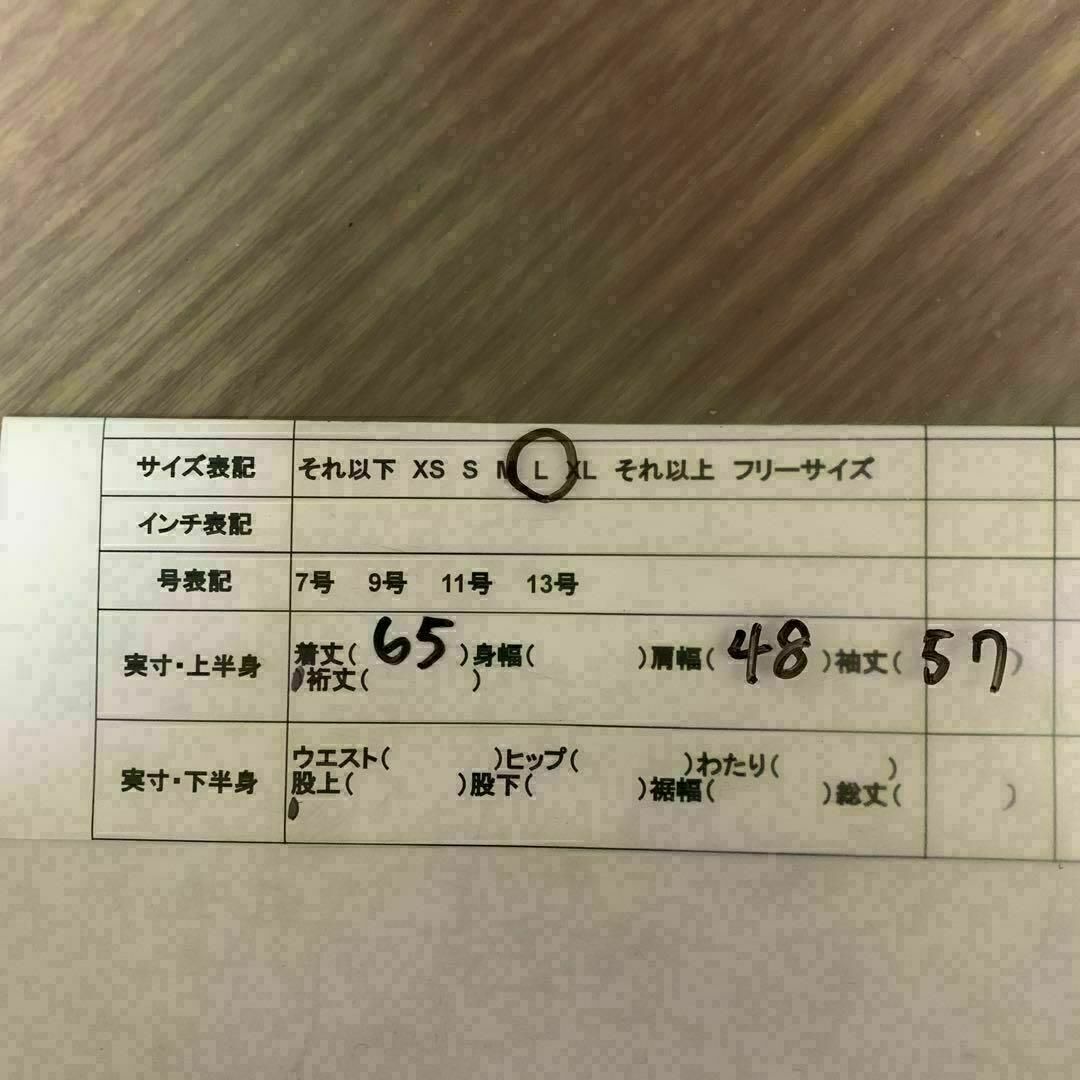 サイズ表記 それ以下 XS S M L XL それ以上 フリーサイズ
インチ表記
号表記 7号 9号 11号 13号
実寸・上半身 着丈( 65 )身幅( )肩幅( 48 )袖丈( 57 )
裄丈( )
実寸・下半身 ウエスト( )ヒップ( )わたり( )
股上( )股下( )裾幅( )総丈( )